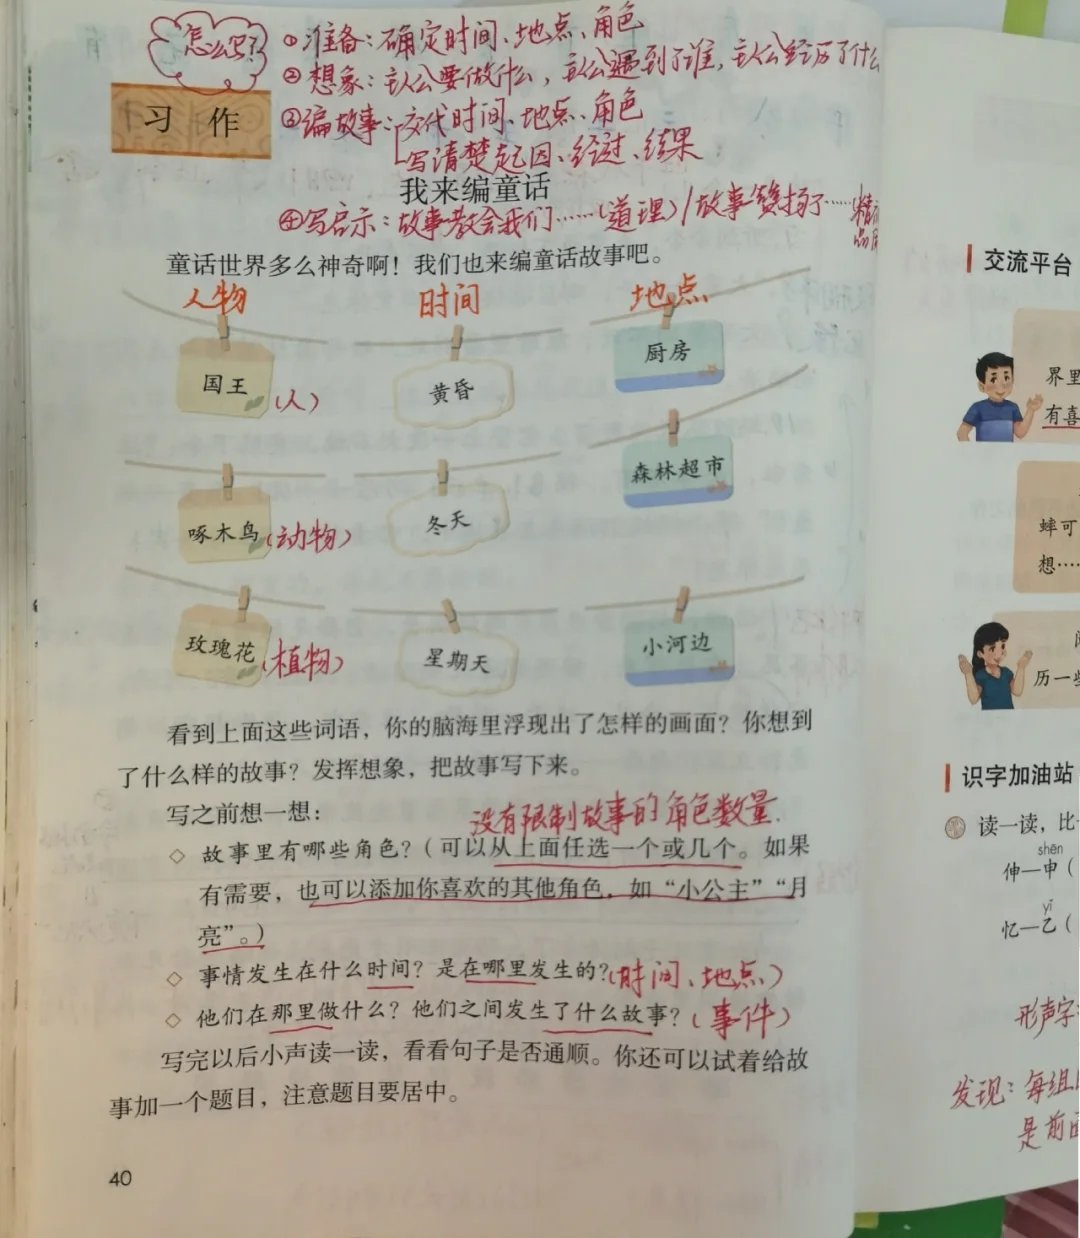 怎么写?
①准备:确定时间、地点、角色
②想象:主人公要做什么,主人公遇到了谁,主人公经历了什么
习作
③编故事:交代时间、地点、角色
写清楚起因、经过、结果
我来编童话
④写启示:故事教会我们……(道理)/故事赞扬了……精
品
童话世界多么神奇啊!我们也来编童话故事吧。
人物 时间 地点
国王(人) 黄昏 厨房
啄木鸟(动物) 冬天 森林超市
玫瑰花(植物) 星期天 小河边
看到上面这些词语,你的脑海里浮现出了怎样的画面?你想到
了什么样的故事?发挥想象,把故事写下来。
写之前想一想:
没有限制故事的角色数量.
◇ 故事里有哪些角色?(可以从上面任选一个或几个。如果
有需要,也可以添加你喜欢的其他角色,如“小公主”“月
亮”。)
◇ 事情发生在什么时间?是在哪里发生的?(时间、地点)
◇ 他们在那里做什么?他们之间发生了什么故事?(事件)
写完以后小声读一读,看看句子是否通顺。你还可以试着给故
事加一个题目,注意题目要居中。
40
交流平台
界里
有喜
蚌可
想……
历一些
识字加油站
读一读,比一
shēn
伸—申(
yǐ
忆—乙(
形声字
发现:每组
是前